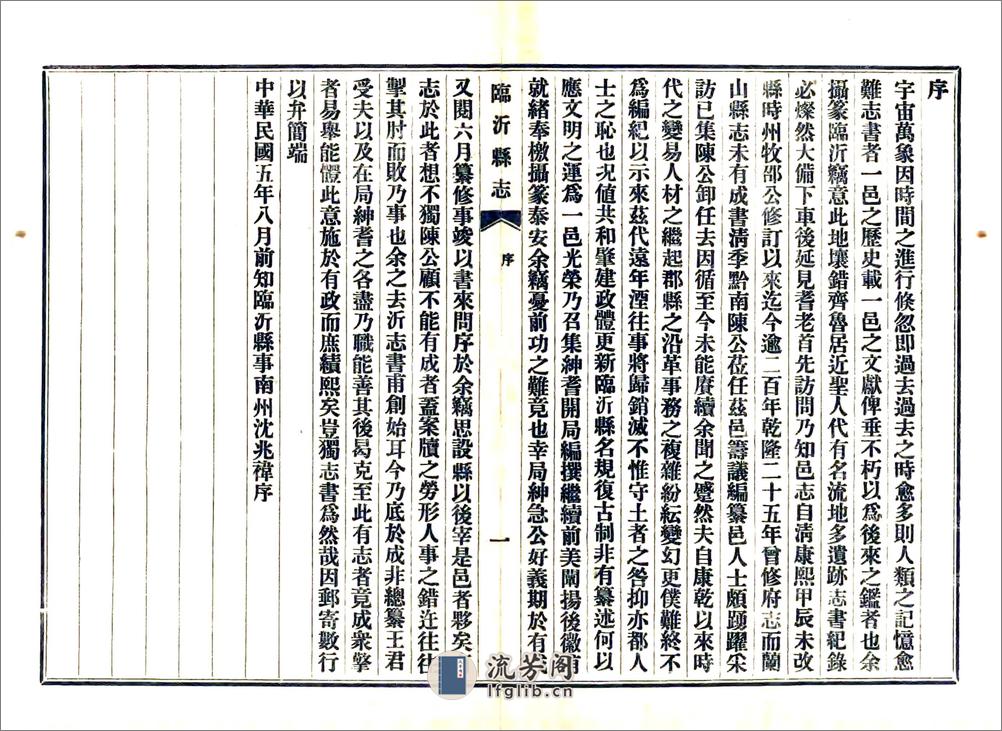 序
宇宙萬象因時間之進行倏忽即過去過去之時愈多則人類之記憶愈
難志書者一邑之歷史載一邑之文獻俾垂不朽以爲後來之鑑者也余
攝篆臨沂竊意此地壤錯齊魯居近聖人代有名流地多遺跡志書紀錄
必燦然大備下車後延見耆老首先訪問乃知邑志自清康熙甲辰未改
縣時州牧邵公修訂以來迄今逾二百年乾隆二十五年曾修府志而蘭
山縣志未有成書清季黔南陳公莅任茲邑籌議編纂邑人士頗踴躍采
訪已集陳公卸任去因循至今未能賡續余聞之蹙然夫自康乾以來時
代之變易人材之繼起郡縣之沿革事務之複雜紛紜變幻更僕難終不
爲編紀以示來茲代遠年湮往事將歸銷滅不惟守土者之咎抑亦都人
士之恥也況值共和肇建政體更新臨沂縣名規復古制非有纂述何以
應文明之運爲一邑光榮乃召集紳耆開局編撰繼續前美闡揚後徽甫
就緒奉檄攝篆泰安余竊憂前功之難竟也幸局紳急公好義期於有成
臨沂縣志
序
一
又閱六月纂修事竣以書來問序於余竊思設縣以後宰是邑者夥矣有
志於此者想不獨陳公顧不能有成者蓋案牘之勞形人事之錯迕往往
掣其肘而敗乃事也余之去沂志書甫創始耳今乃底於成非總纂王君
受夫以及在局紳耆之各盡乃職能善其後曷克至此有志者竟成衆擎
者易舉能體此意施於有政而庶績熙矣豈獨志書爲然哉因郵寄數行
以弁簡端
中華民國五年八月前知臨沂縣事南州沈兆褘序
流芳阁
lfglib.cn